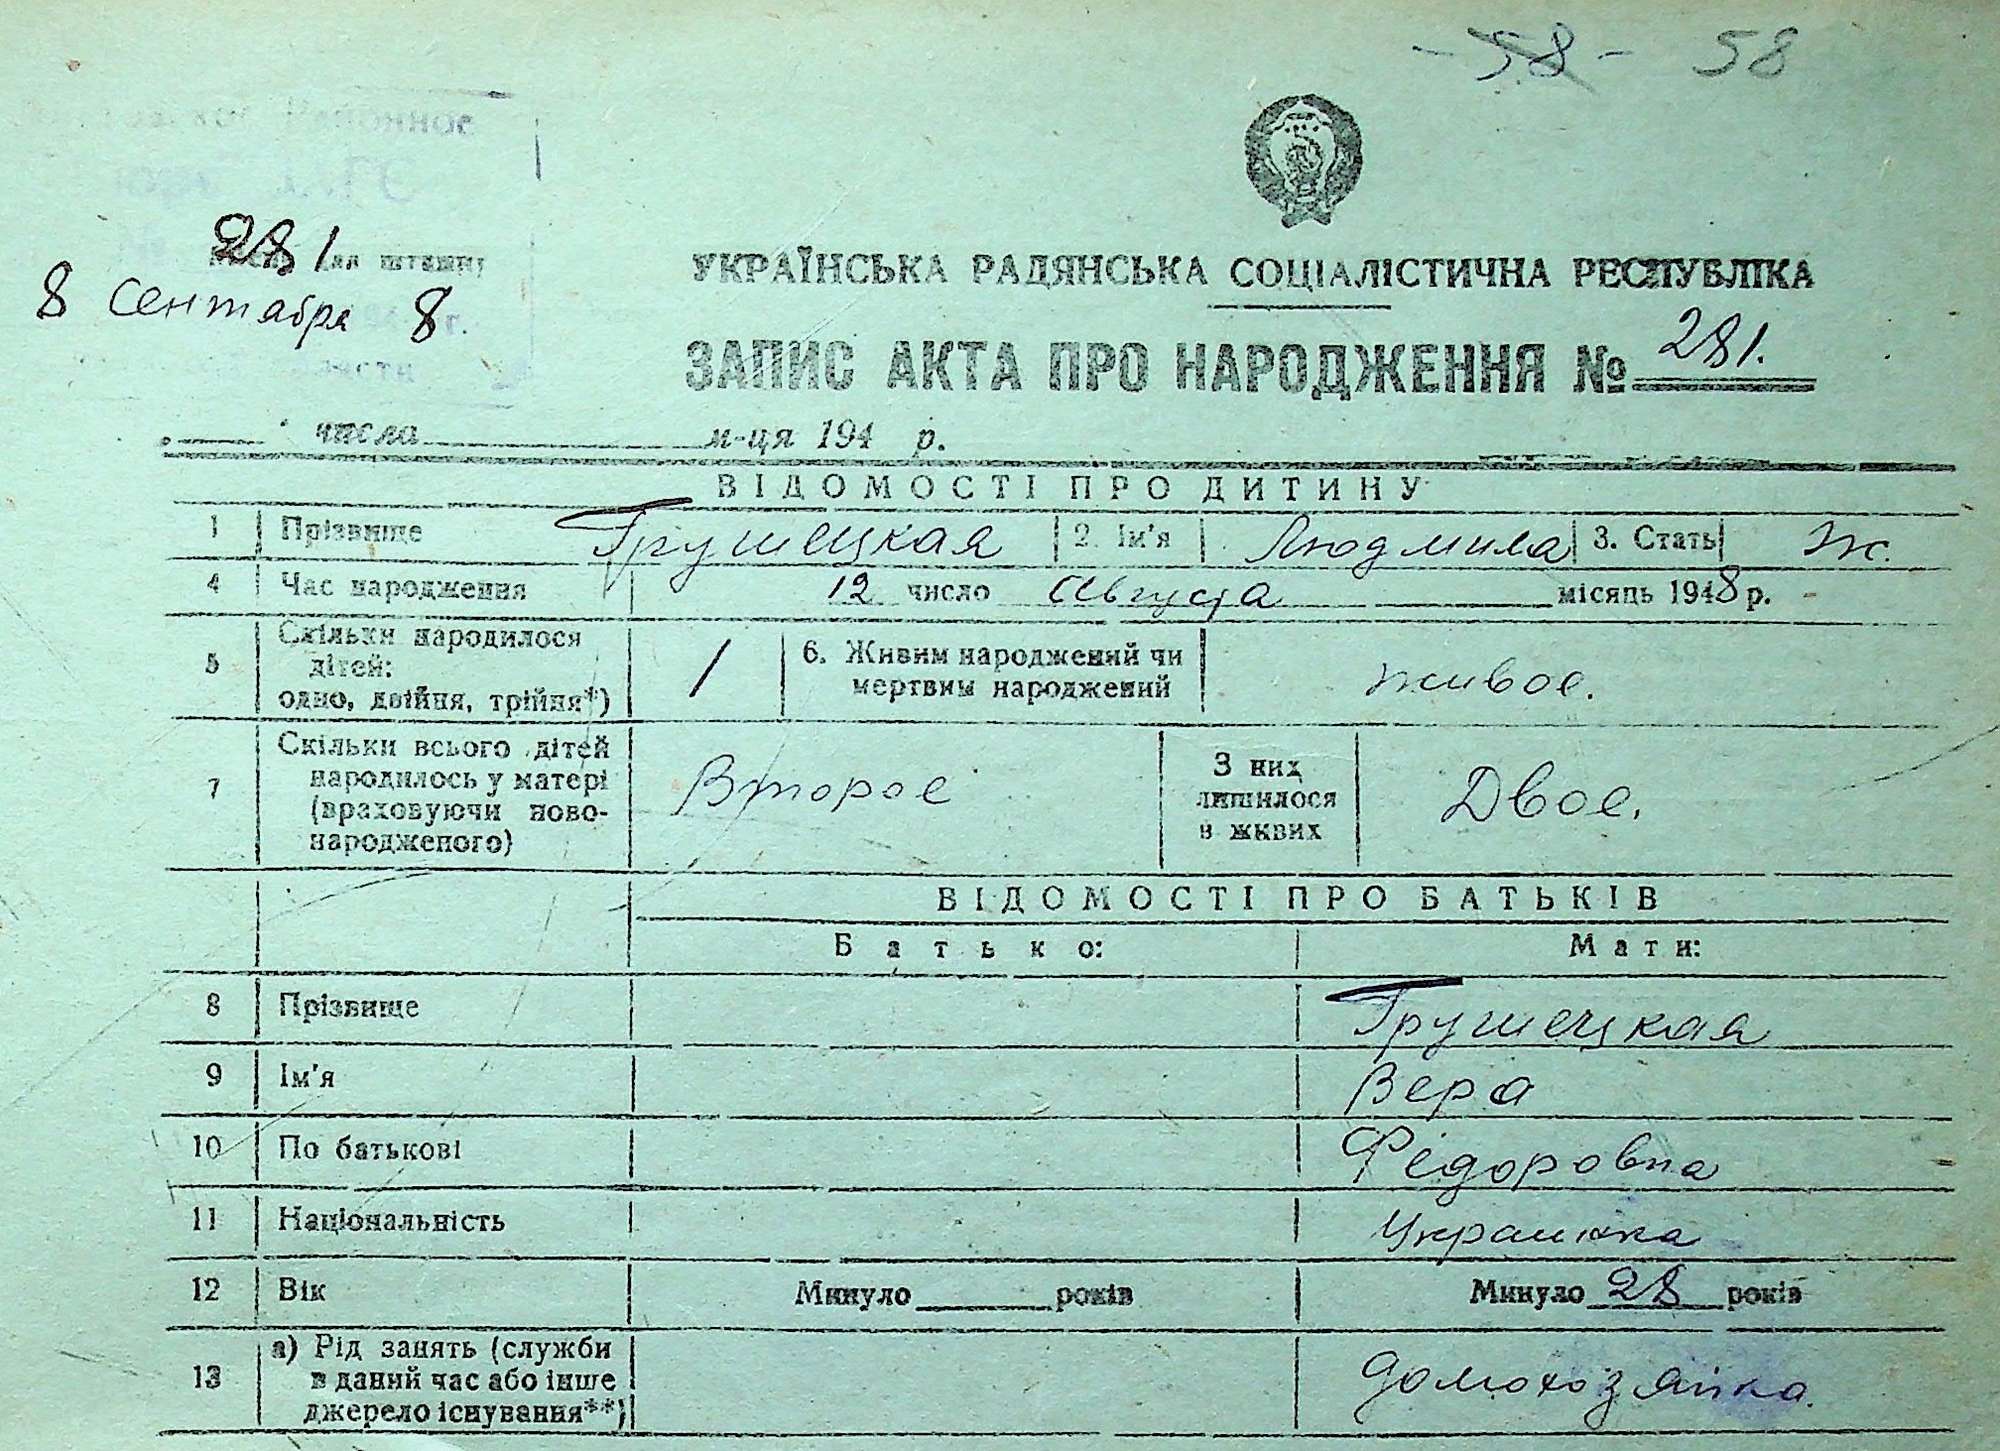 -58- 58
Районное
281
для штампу
8 Сентября 8 г.
УКРАЇНСЬКА РАДЯНСЬКА СОЦІАЛІСТИЧНА РЕСПУБЛІКА
ЗАПИС АКТА ПРО НАРОДЖЕННЯ № 281.
числа м-ця 194 р.
ВІДОМОСТІ ПРО ДИТИНУ
1 Прізвище Грушецкая 2. Ім'я Людмила 3. Стать Ж.
4 Час народження 12 число Августа місяць 1948 р.
5 Скільки народилося
дітей:
одно, двійня, трійня*) 1 6. Живим народжений чи
мертвим народжений живое.
7 Скільки всього дітей
народилось у матері
(враховуючи ново-
народженого) Второе З них
лишилося
в живих Двое.
ВІДОМОСТІ ПРО БАТЬКІВ
Батько: Мати:
8 Прізвище Грушецкая
9 Ім'я Вера
10 По батькові Фёдоровна
11 Національність Украинка
12 Вік Минуло років Минуло 28 років
13 а) Рід занять (служби
в даний час або інше
джерело існування**) домохозяйка.